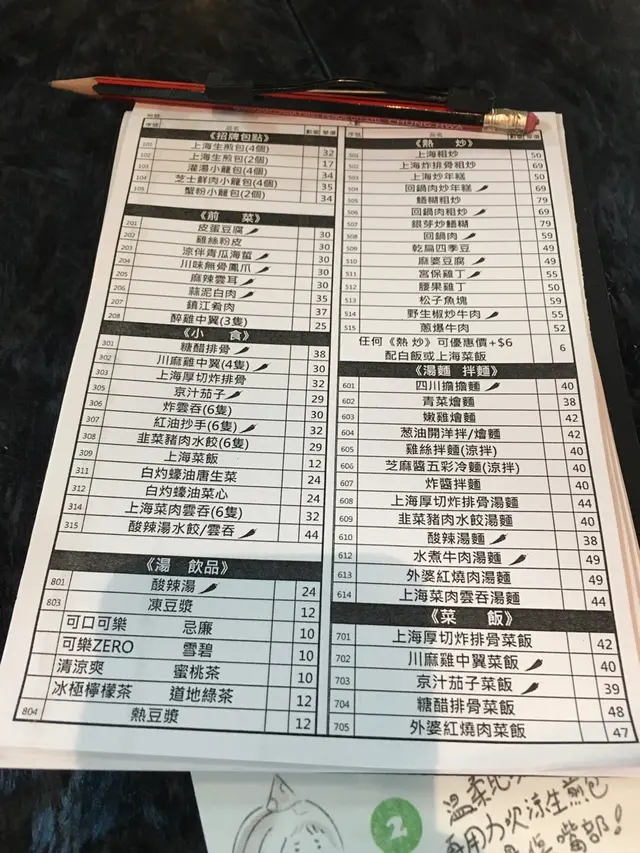 CHUNG HWA
序號 品名 數量 單價
《招牌包點》
101 上海生煎包(4個) 32
102 上海生煎包(2個) 17
103 灌湯小籠包(4個) 34
104 芝士鮮肉小籠包(4個) 35
105 蟹粉小籠包(2個) 34
《前 菜》
201 皮蛋豆腐 30
202 雞絲粉皮 30
203 涼伴青瓜海蜇 30
204 川味無骨鳳爪 30
205 麻辣雲耳 30
206 蒜泥白肉 35
207 鎮江肴肉 37
208 醉雞中翼(3隻) 25
《小 食》
301 糖醋排骨 38
302 川麻雞中翼(4隻) 30
303 上海厚切炸排骨 32
305 京汁茄子 29
306 炸雲吞(6隻) 30
307 紅油抄手(6隻) 32
308 韭菜豬肉水餃(6隻) 29
309 上海菜飯 12
311 白灼蠔油唐生菜 24
312 白灼蠔油菜心 24
314 上海菜肉雲吞(6隻) 32
315 酸辣湯水餃/雲吞 44
《湯 飲品》
801 酸辣湯 24
803 凍豆漿 12
可口可樂 忌廉 10
可樂ZERO 雪碧 10
清涼爽 蜜桃茶 10
冰極檸檬茶 道地綠茶 12
804 熱豆漿 12
序號 品名 數量 單價
《熱 炒》
501 上海粗炒 50
502 上海炸排骨粗炒 69
503 上海炒年糕 50
504 回鍋肉炒年糕 69
505 鱔糊粗炒 79
506 回鍋肉粗炒 69
507 銀芽炒鱔糊 79
508 回鍋肉 59
509 乾扁四季豆 49
510 麻婆豆腐 49
511 宮保雞丁 55
512 腰果雞丁 50
513 松子魚塊 59
514 野生椒炒牛肉 55
515 蔥爆牛肉 52
任何《熱 炒》可優惠價+$6
配白飯或上海菜飯 6
《湯麵 拌麵》
601 四川擔擔麵 40
602 青菜燴麵 38
603 嫩雞燴麵 42
604 葱油開洋拌/燴麵 42
605 雞絲拌麵(涼拌) 40
606 芝麻醬五彩冷麵(涼拌) 40
607 炸醬拌麵 40
608 上海厚切炸排骨湯麵 44
609 韭菜豬肉水餃湯麵 40
610 酸辣湯麵 38
612 水煮牛肉湯麵 49
613 外婆紅燒肉湯麵 49
614 上海菜肉雲吞湯麵 44
《菜 飯》
701 上海厚切炸排骨菜飯 42
702 川麻雞中翼菜飯 40
703 京汁茄子菜飯 39
704 糖醋排骨菜飯 48
705 外婆紅燒肉菜飯 47
2
溫柔
用力吹涼生煎包
嘴部!